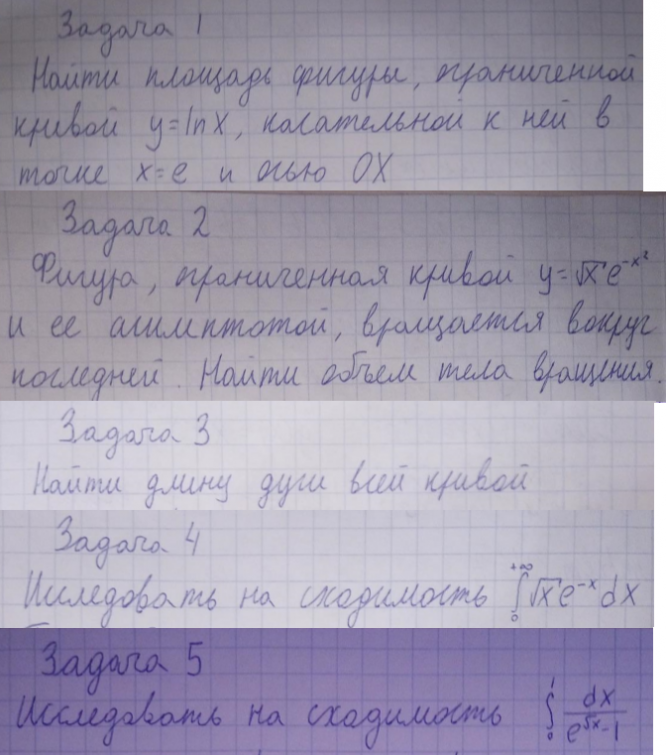 Задача 1
Найти площадь фигуры, ограниченной
кривой y=lnx, касательной к ней в
точке x=e и осью OX
Задача 2
Фигура, ограниченная кривой y=√x e^{-x²}
и ее асимптотой, вращается вокруг
последней. Найти объем тела вращения.
Задача 3
Найти длину дуги всей кривой
Задача 4
Исследовать на сходимость ∫₀^{+∞} √x e^{-x} dx
Задача 5
Исследовать на сходимость ∫₀¹ dx/(e^{√x}-1)